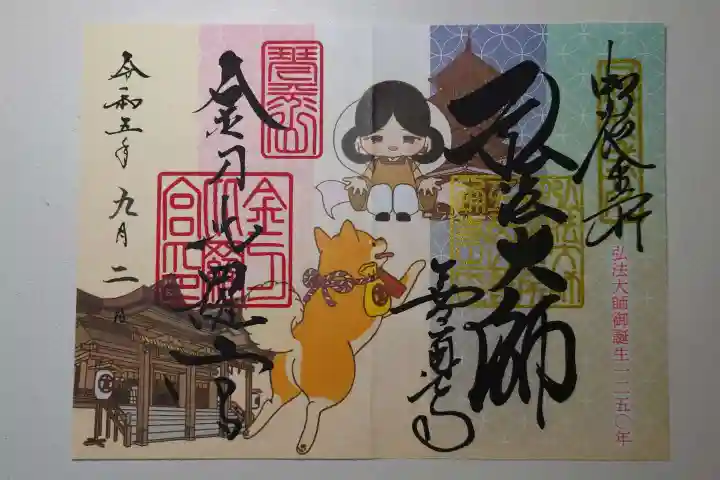 御誕生所
弘法大師御誕生一二五〇年
弘法大師
善通寺
琴平山
金刀比羅宮
金刀比羅宮印
令和五年九月二日